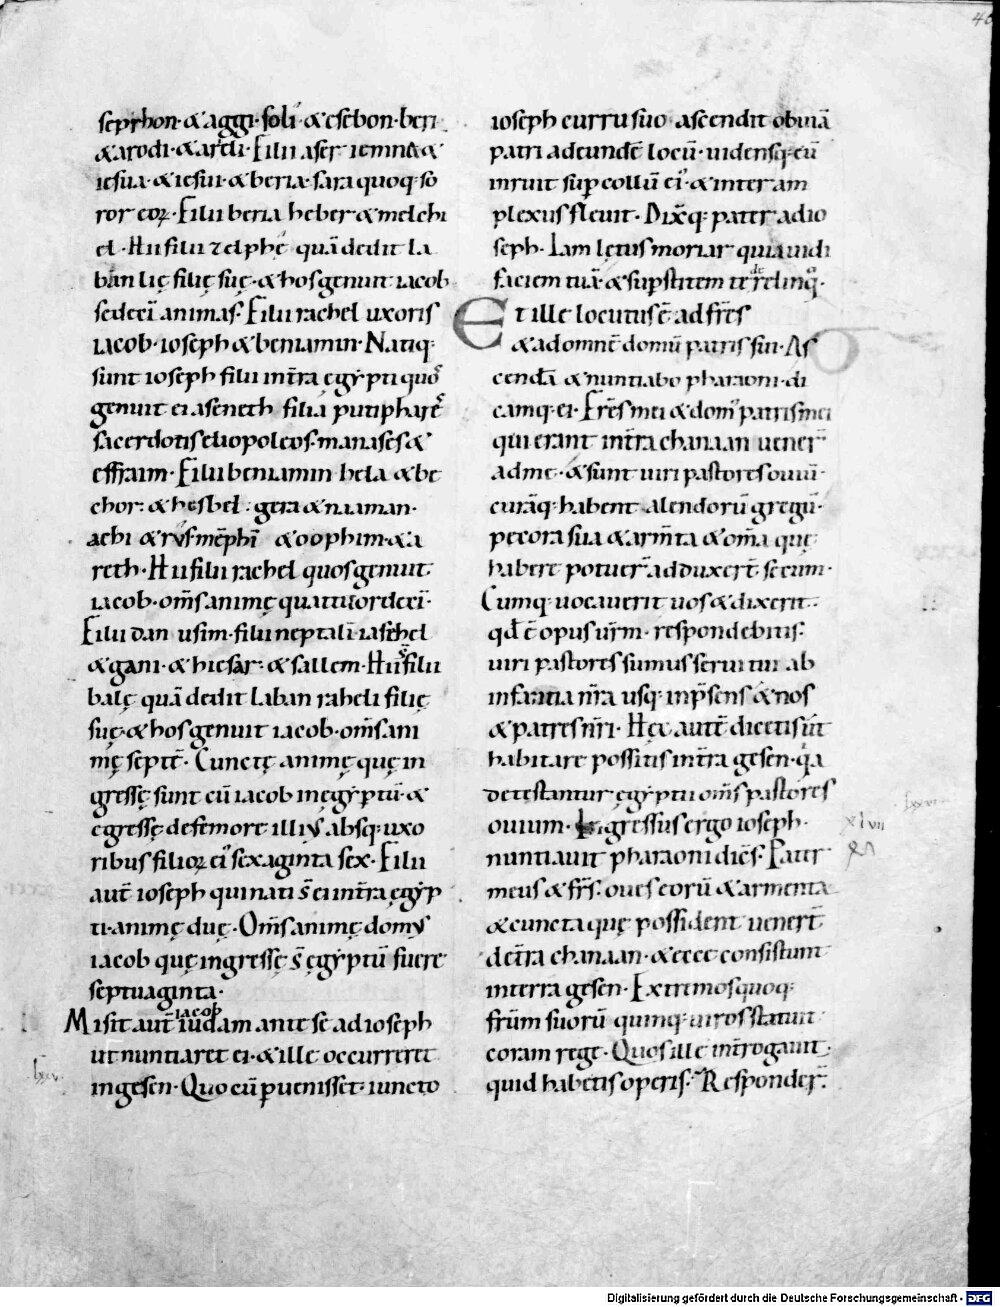 40
sephon· & aggi· soli· & esebon· beri
& arodi· & areli· Filii aser iemna &
iesua· & iesui· & beria· sara quoq· so
ror eoꝝ· Filii beria heber & melchi
el· Hii filii zelphę quā dedit la
ban lię filię suę· & hos genuit iacob
sedecī animas· Filii rachel uxoris
iacob· ioseph & beniamin· Natiq·
sunt ioseph filii int̄ra ęgypti quos
genuit ei aseneth filia putiphare
sacerdotis eliopoleos· manases &
effraim· Filii beniamin bela & be
chor· & hesbel· gera & naaman·
achi & ros· mephī & oophim· & a
reth· Hii filii rachel quos genuit
iacob· om̄s animę quattuordecī·
Filii dan usim· filii neptali iasihel
& gani· & hiesar· & sallem· Hii s filii
balę quā dedit laban raheli filię
suę· & hos genuit iacob· om̄s ani
mę septē· Cunctę animę quę in
gressę sunt cū iacob in ęgyptū· &
egressę de femore illius absq· uxo
ribus filioꝝ ei' sexaginta sex· Filii
aut̄ ioseph qui nati s̄ ei int̄ra ęgyp
ti· animę duę· Om̄s animę domus
iacob quę ingressę s̄ ęgyptū fuere
septuaginta·
iacob
Misit aut̄ iudam ante se ad ioseph
ut nuntiaret ei· & ille occurreret
in gesen· Quo cū puenisset· iuncto
ioseph curru suo ascendit obuiā
patri ad eundē locū· uidensq· eū
inruit sup collū ei'· & inter am
plexus fleuit· Dixq· pater ad io
seph· Iam lętus moriar quia uidi
faciem tuā· & supstitem te relinq°·
Et ille locutus ē ad fr̄es
& ad omnē domū patris sui· As
cendā & nuntiabo pharaoni· di
camq· ei· Fr̄es mei & dom' patris mei
qui erant int̄ra chanaan uener̄
ad me· & sunt uiri pastores ouiū·
curāq· habent alendorū gregū·
pecora sua & arm̄ta & om̄a quę
habere potuer̄ adduxert̄ secum·
Cumq· uocauerit uos & dixerit·
qd̄ ē opus ur̄m· respondebitis·
uiri pastores sumus serui tui ab
infantia nr̄a usq· inp̄sens & nos
& patres nr̄i· Hęc aut̄ dicetis ut
habitare possitis int̄ra gesen· qa
detestantur ęgyptii om̄s pastores
ouium· Ingressus ergo ioseph·
nuntiauit pharaoni dicēs· Pater
meus & fr̄s· oues eorū & armenta
& cuncta quę possident uenert̄
det̄ra chanaan· & ecce consistunt
interra gesen· Extremos quoq·
fr̄um suorū quinq· uiros statuit
coram rege· Quos ille int̄rogauit·
quid habetis operis· Responder̄·
xlvii
Digitalisierung gefördert durch die Deutsche Forschungsgemeinschaft - DFG